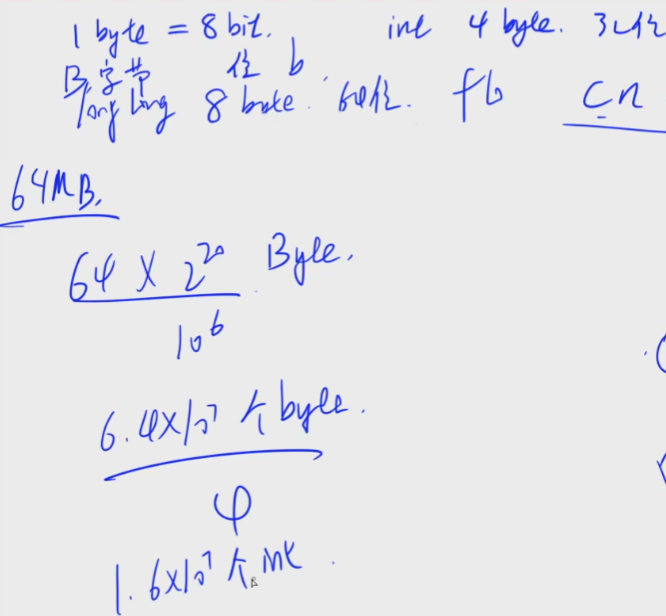 1 byte = 8 bit. int 4 byte. 32位
B 字节 位 b
long long 8 byte. 64位. fb cn
64MB.
64 × 2^20 Byte.
10^6
6.4×10^7 个 byte.
4
1.6×10^7 个 int.